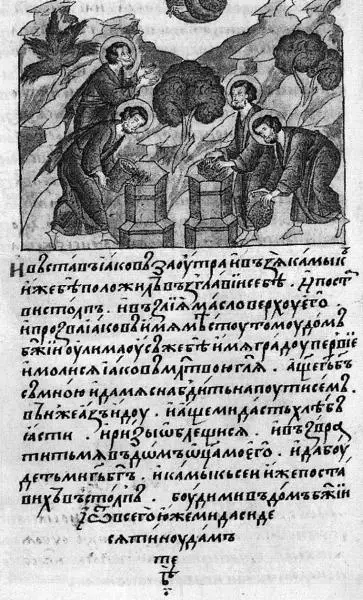 и въставъ іаковъ заоутра и въꙁѧ камыкъ
иже бѣ положилъ въꙁглавіи себѣ . и пост
ви столпъ . и въꙁліѧ масло верхоу его
и проꙁва іаковъ имѧ мѣстоу томоу домъ
бж҃іи оулимаоус же бѣ имѧ градоу первіе
и молисѧ іаковъ мл҃твою гл҃ѧ . аще г҃ь бъ
съ мною и да мѧ снабдить на поути семъ
въ н же аꙁъ идоу . и аще ми дасть хлѣбъ
ꙗсти . и риꙁы ѡблещисѧ . и въꙁвра
тить мѧ въ домъ ѡц҃а моего . и да боу
деть ми г҃ь б҃гъ . и камыкъ сеи иже поста
вихъ въ столпъ . боуди ми въ домъ бж҃іи
ѿ всего юже ми даси де
сѧтиноу дамъ
те
бѣ